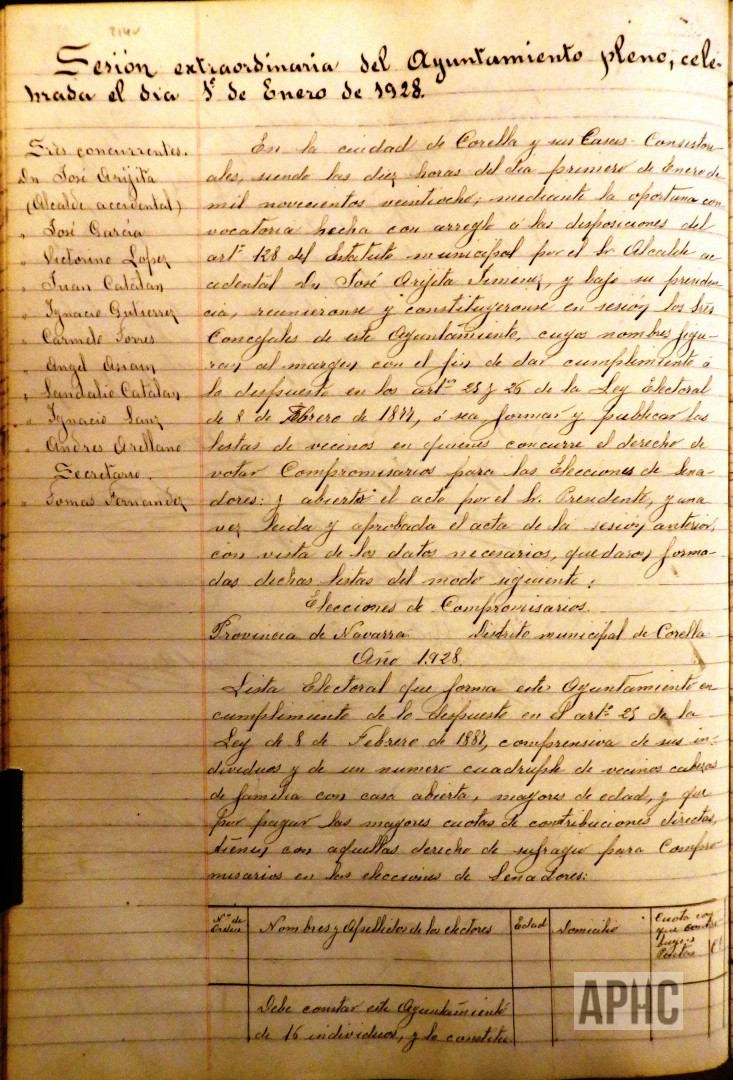 Sesión extraordinaria del Ayuntamiento pleno, cele-
brada el dia 1º de Enero de 1928.
Sres concurrentes.
Dn José Arijita
(Alcalde accidental)
" José García
" Victorino Lopez
" Juan Catalan
" Ignacio Gutierrez
" Carmelo Torres
" Angel
" Sandalio Catalan
" Ignacio Sanz
" Andres Arellano
Secretario.
" Tomas Fernandez
En la ciudad de Corella y sus Casas-Consistori-
ales, siendo las diez horas del dia primero de Enero de
mil novecientos veintiocho; mediante la oportuna con
vocatoria hecha con arreglo á las disposiciones del
artº 128 del Estatuto municipal por el Sr. Alcalde ac-
cidental Dn José Arijita Jimenez, y bajo su presiden
cia, reunieronse y constituyeronse en sesión los Sres
Concejales de este Ayuntamiento, cuyos nombres figu-
ran al margen con el fin de dar cumplimiento á
lo despuesto en los artº 25 y 26 de la Ley Electoral
de 8 de Febrero de 1877, ó sea formar y publicar las
listas de vecinos en quienes concurre el derecho de
votar Compromisarios para las Elecciones de Sena-
dores: y abierto el acto por el Sr. Presidente, y una
vez leida y aprobada el acta de la sesion anterior,
con vista de los datos necesarios, quedaron forma-
das dichas listas del modo siguiente:
Elecciones de Compromisarios.
Provincia de Navarra Distrito municipal de Corella
Año 1928.
Lista Electoral que forma este Ayuntamiento en
cumplimiento de lo despuesto en el artº 25 de la
Ley de 8 de Febrero de 1877, comprensiva de sus in-
dividuos y de un numero cuadruple de vecinos cabezas
de familia con casa abierta, mayores de edad, y que
por pagar las mayores cuotas de contribuciones directas,
tienen con aquellas derecho de sufragio para Compro
misarios en las elecciones de Senadores:
Nº de Orden
Nombres y Apellidos de los electores
Edad
Domicilio
Cuota con
que
Pesetas
Debe constar este Ayuntamiento
de 16 individuos, y lo constitu
APHC